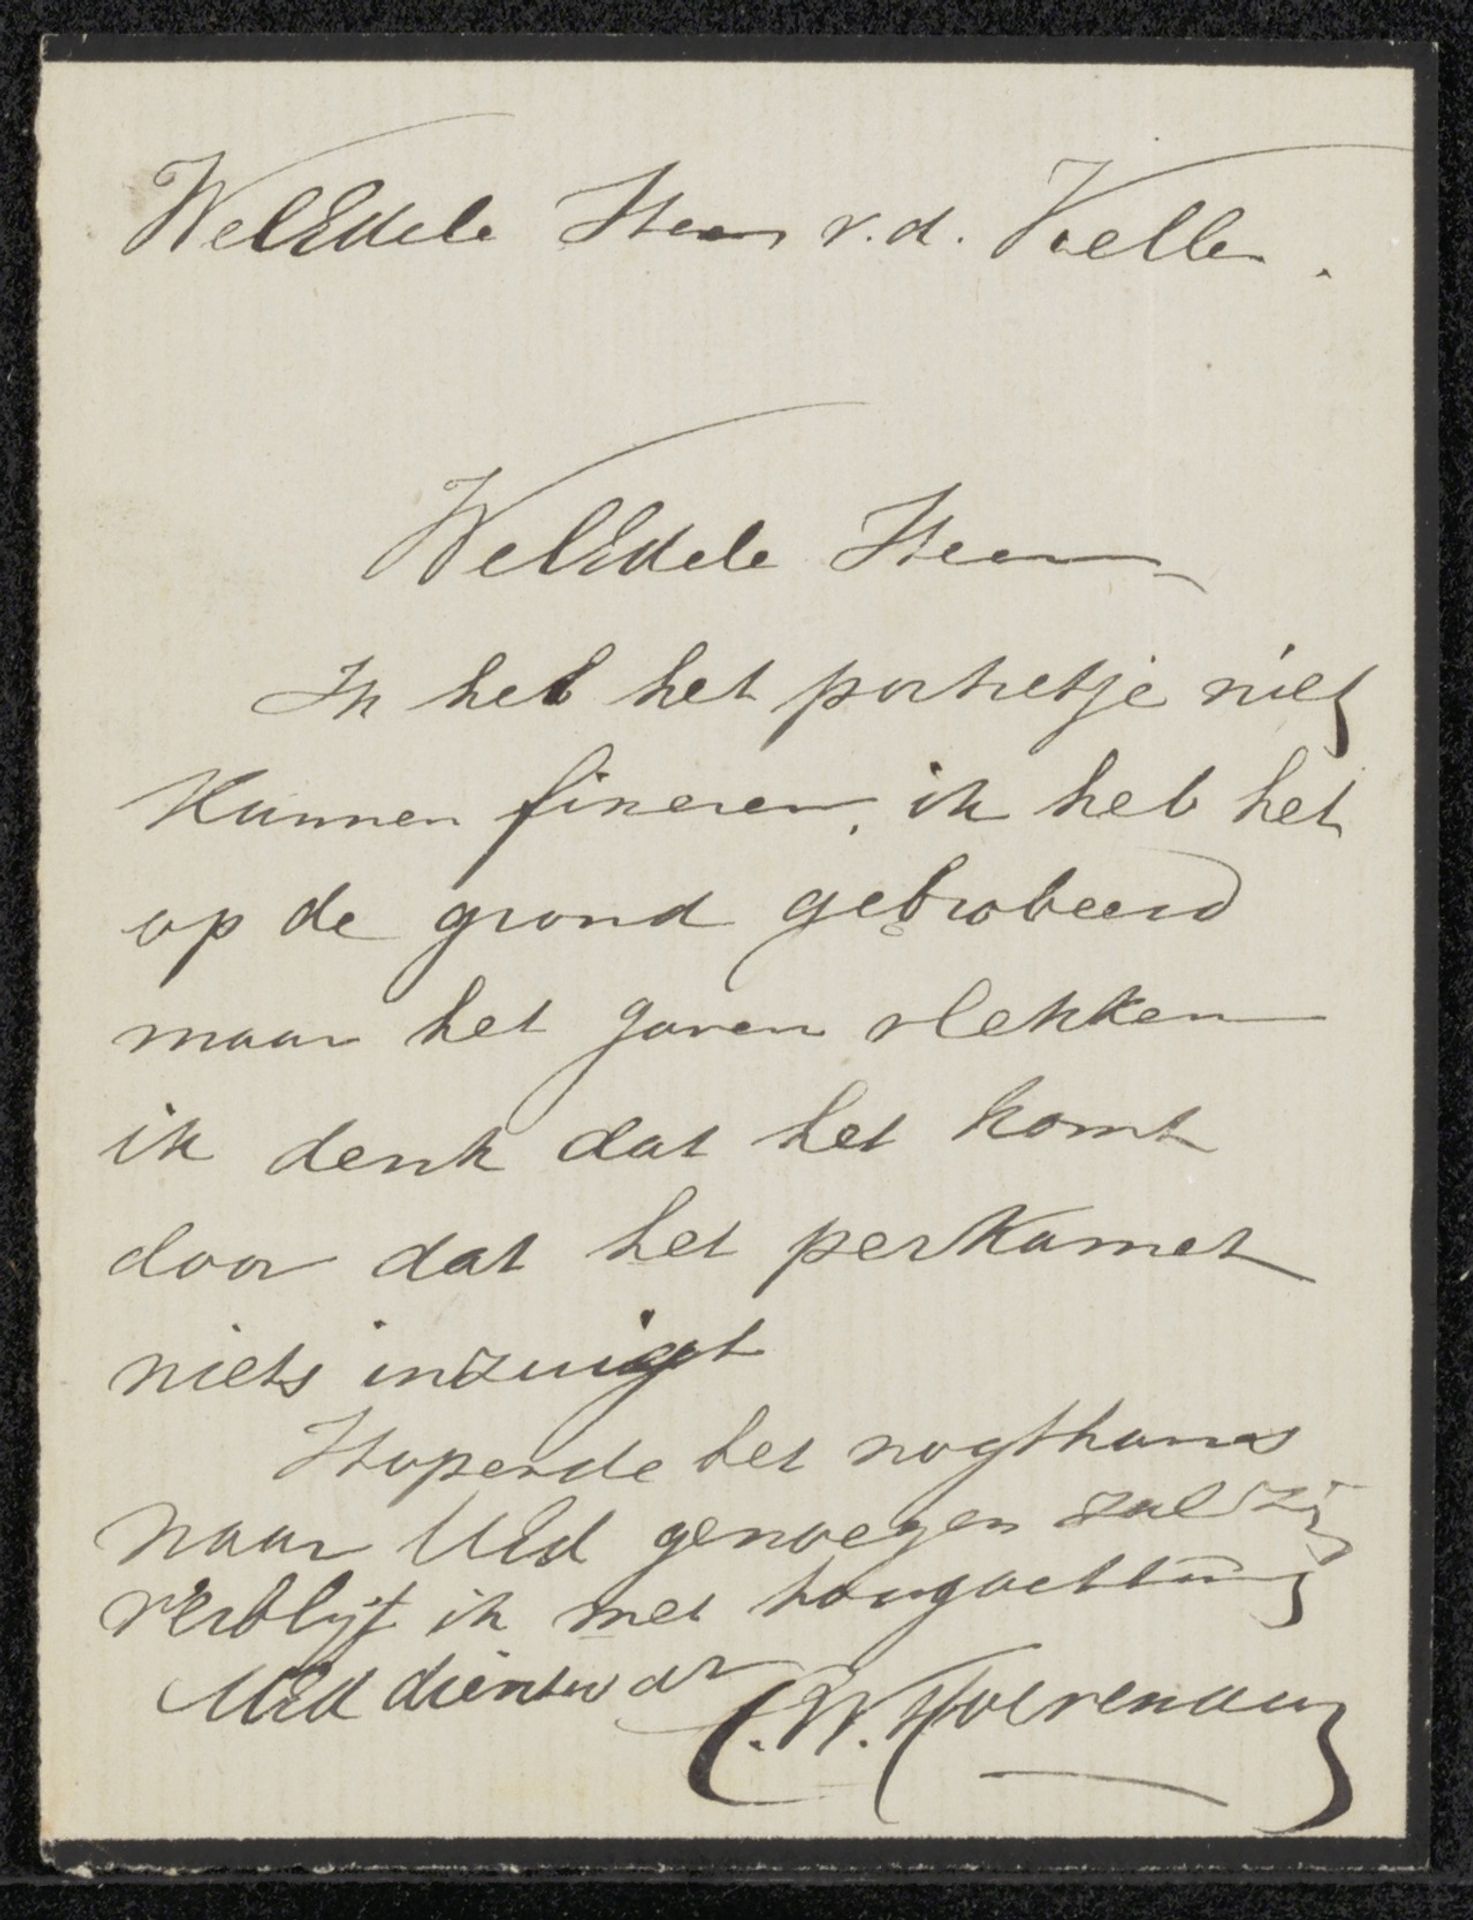 WelEdele Heer v.d. Kellen.
WelEdele Heer
Ik heb het portretje niet
kunnen fixeren, ik heb het
op de grond gebrobeerd
maar het gaven vlekken
ik denk dat het komt
door dat het perkamet
niets inzuigt
Hopende het nogthans
naar UEd genoegen zal zijn
verblijf ik met hoogachting
UEd dienstw dr C.W.